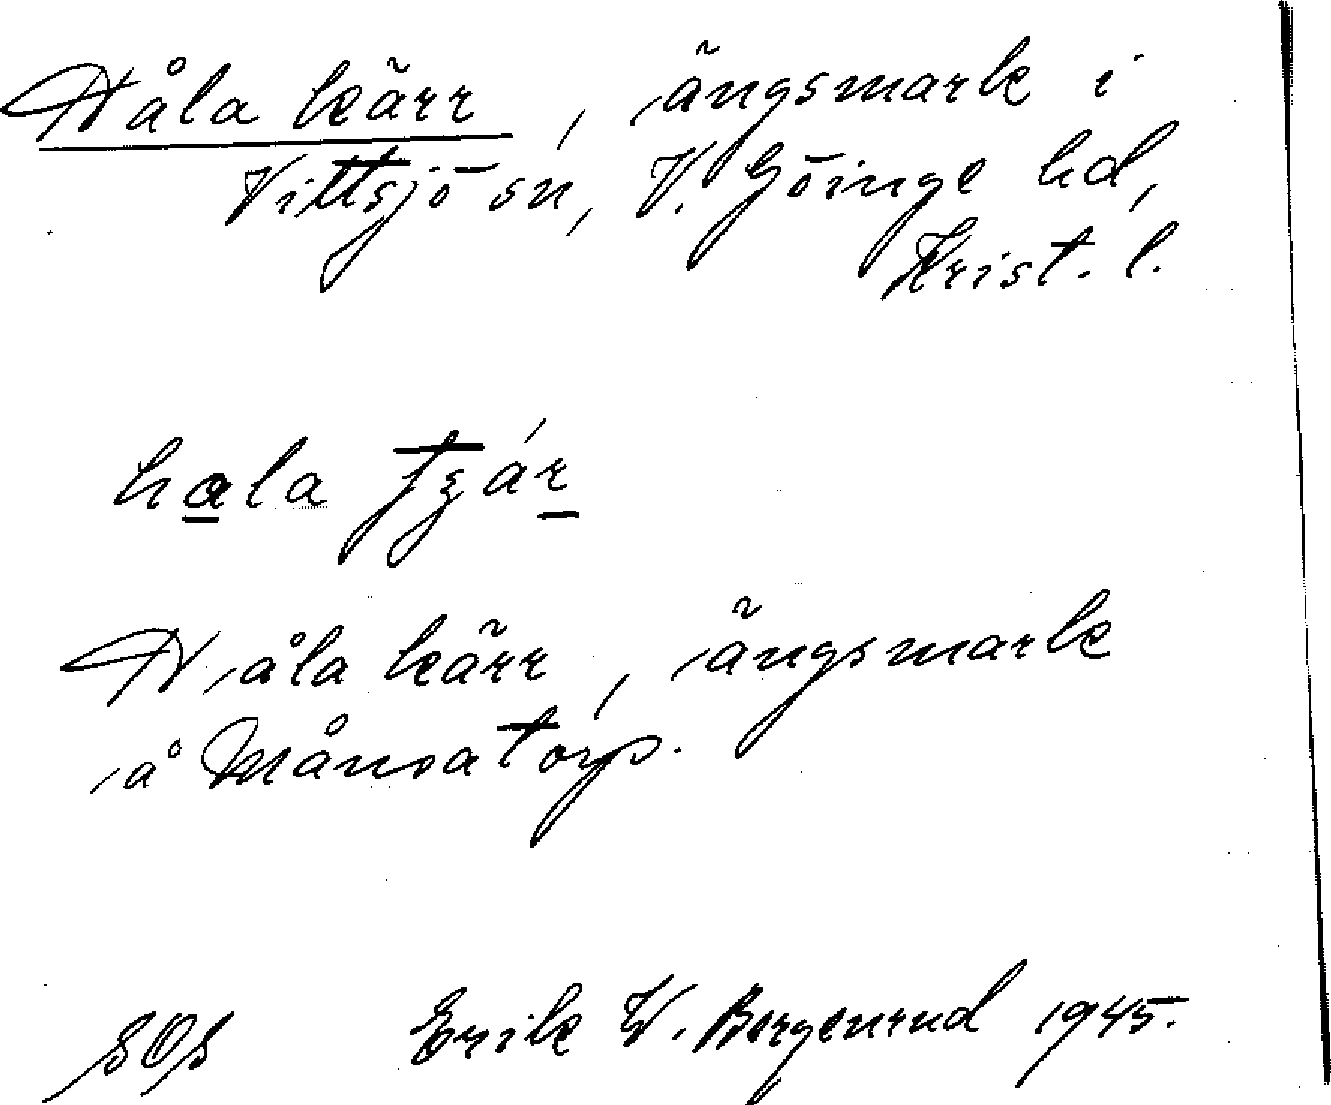 Håla kärr, ängsmark i
Vittsjö sn, V. Göinge hd,
Krist. l.
hala tʒár
Håla kärr, ängsmark
å Månsatorp.
SOS Erik W. Bergenrud 1945.